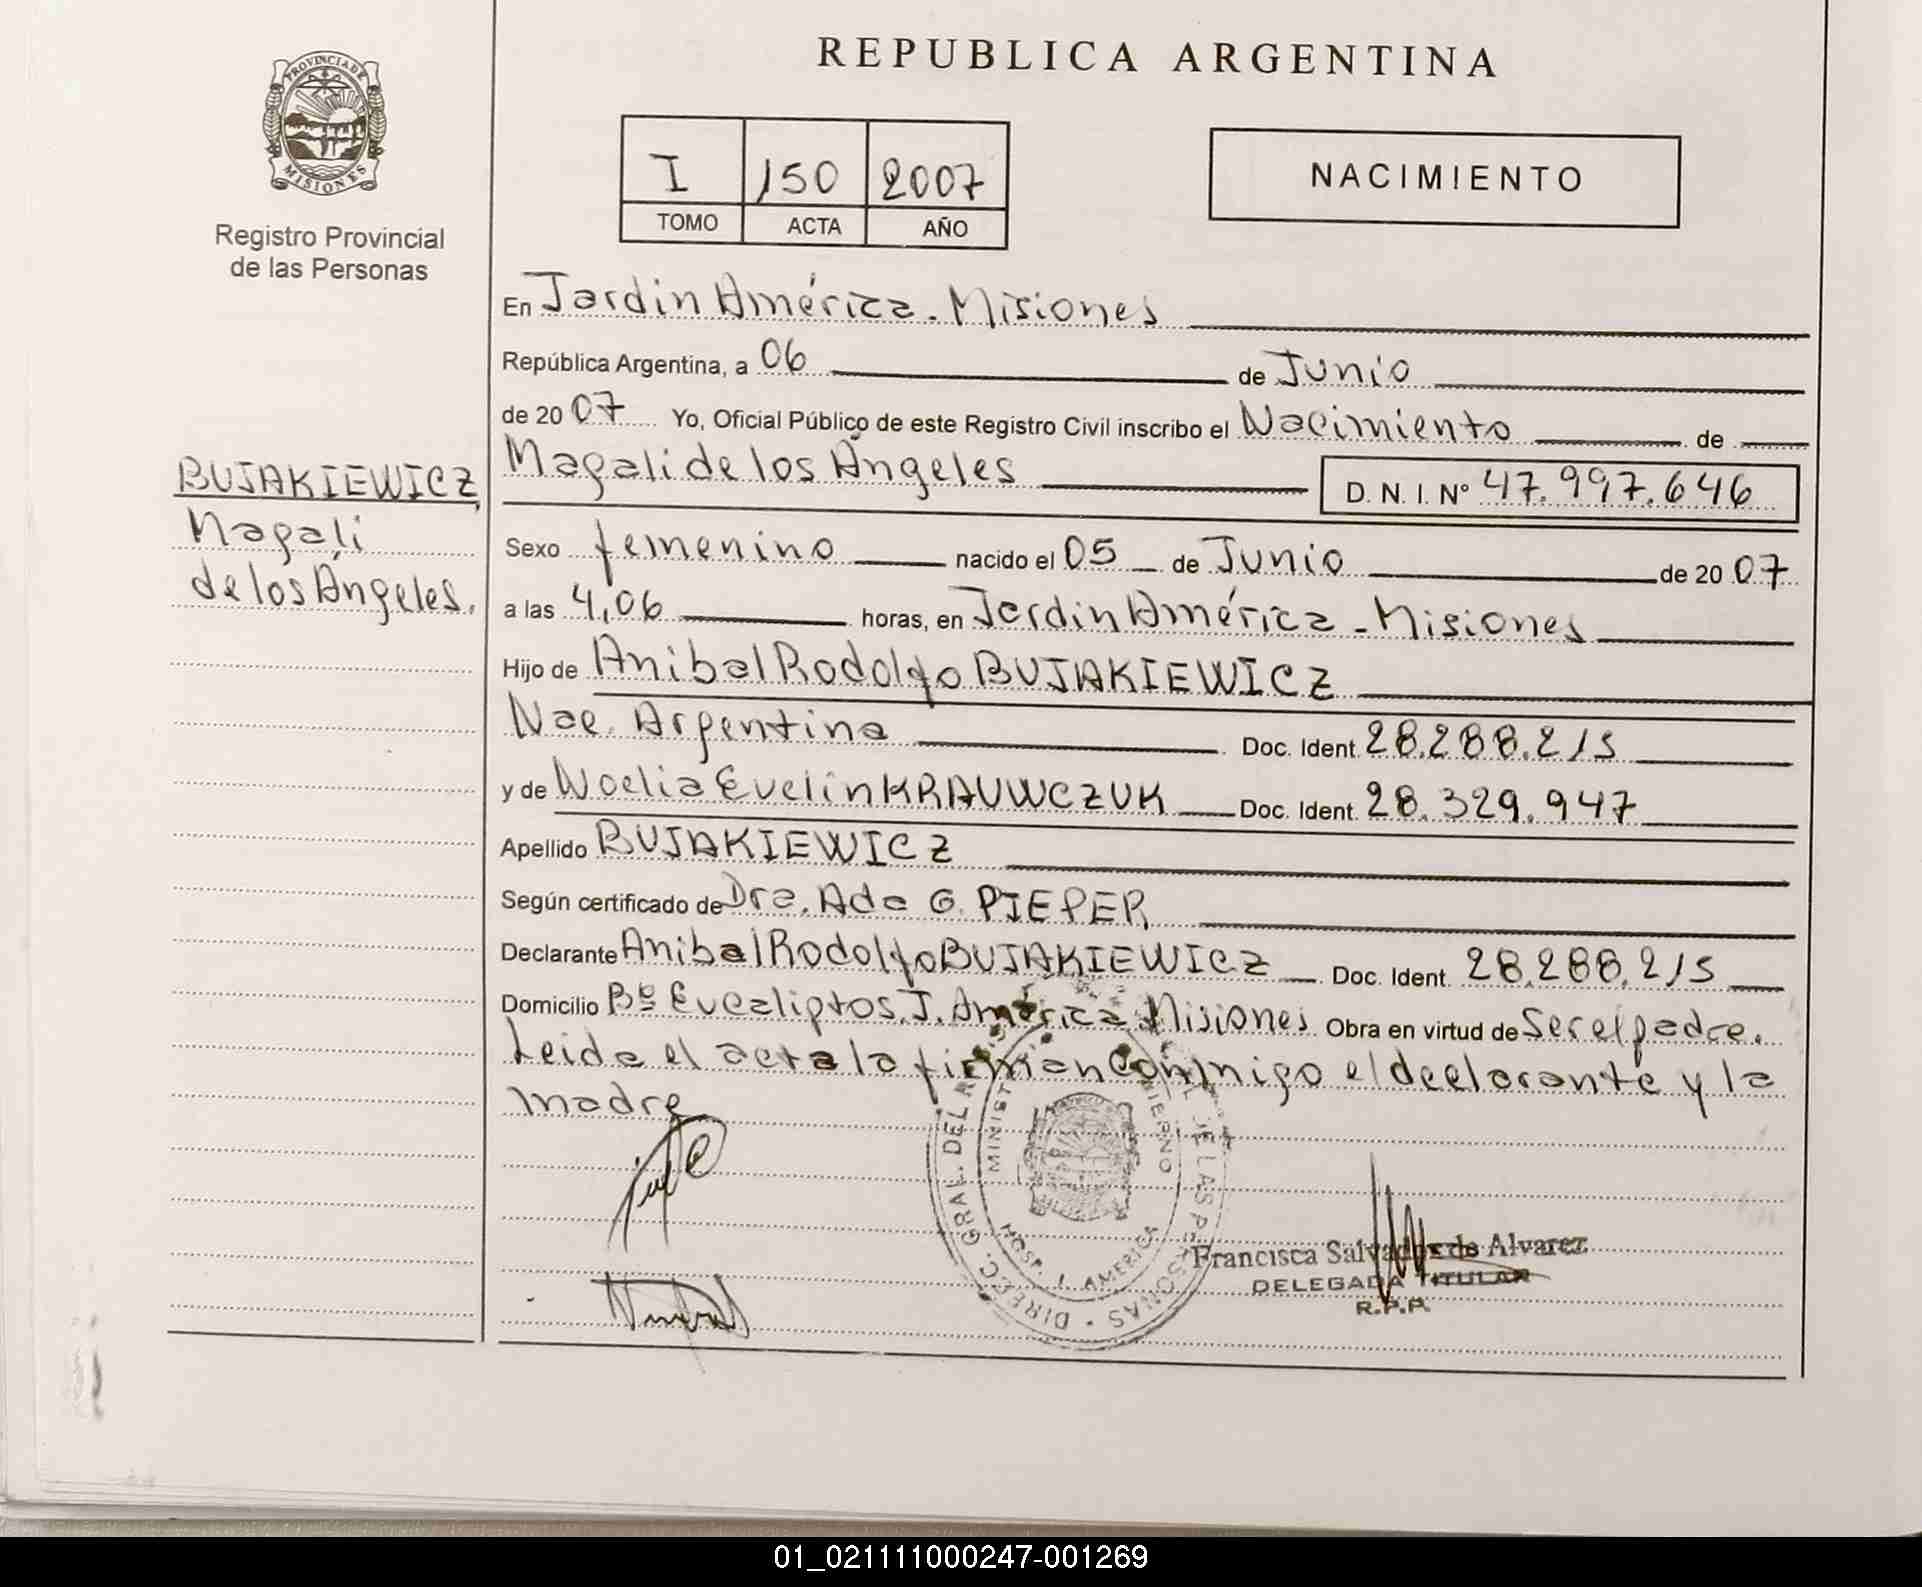 REPUBLICA ARGENTINA
PROVINCIA DE
MISIONES
Registro Provincial
de las Personas
I 150 2007
TOMO ACTA AÑO
NACIMIENTO
En Jardín América - Misiones
República Argentina, a 06 de Junio
de 2007 Yo, Oficial Público de este Registro Civil inscribo el Nacimiento de
Magali de los Ángeles D. N. I. Nº 47.997.646
BUJAKIEWICZ,
Magali
de los Ángeles.
Sexo femenino nacido el 05 de Junio de 2007
a las 4,06 horas, en Jardín América - Misiones
Hijo de Anibal Rodolfo BUJAKIEWICZ
Nac. Argentina Doc. Ident. 28.288.215
y de Noelia Evelin KRAUWCZUK Doc. Ident. 28.329.947
Apellido BUJAKIEWICZ
Según certificado de Dra. Ada G. PIEPER
Declarante Anibal Rodolfo BUJAKIEWICZ Doc. Ident. 28.288.215
Domicilio Bº Eucaliptos. J. América Misiones Obra en virtud de Ser el padre.
Leida el acta la firman conmigo el declarante y la
madre
DIREC. GRAL. DEL R DE LAS PERSONAS
MINIST
HOSP. J. AMERICA
Francisca Salvador de Alvarez
DELEGADA TITULAR
R.P.P.
01_021111000247-001269